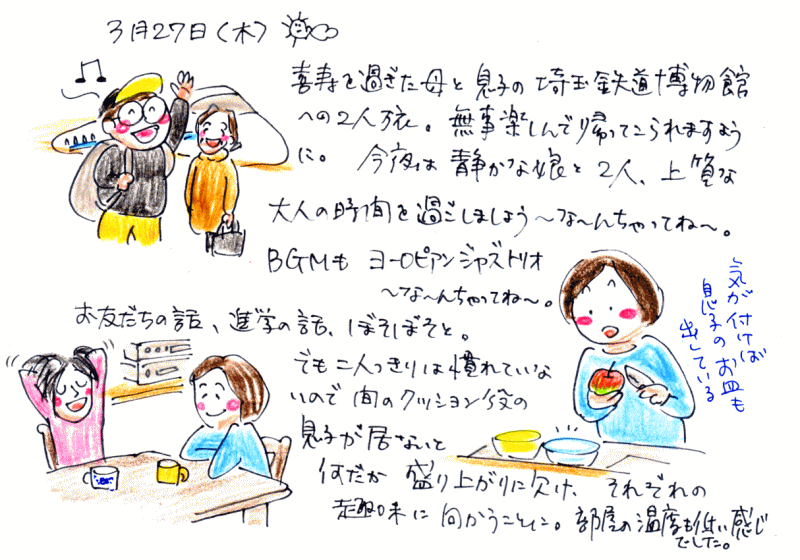 3月27日（木）
喜寿を過ぎた母と息子の埼玉鉄道博物館
への2人旅。無事楽しんで帰ってこられますよう
に。今夜は静かな娘と2人、上質な
大人の時間を過ごしましょう～な～んちゃってね～。
BGMも ヨーロピアンジャズトリオ
～な～んちゃってね～。
お友だちの話、進学の話、ぼそぼそと。
でも二人っきりは慣れていな
いので 間のクッション役の
息子が居ないと
何だか盛り上がりに欠け、それぞれの
趣味に向かうことに。部屋の温度も低い感じ
でした。
気が付けば
息子のお皿も
出している